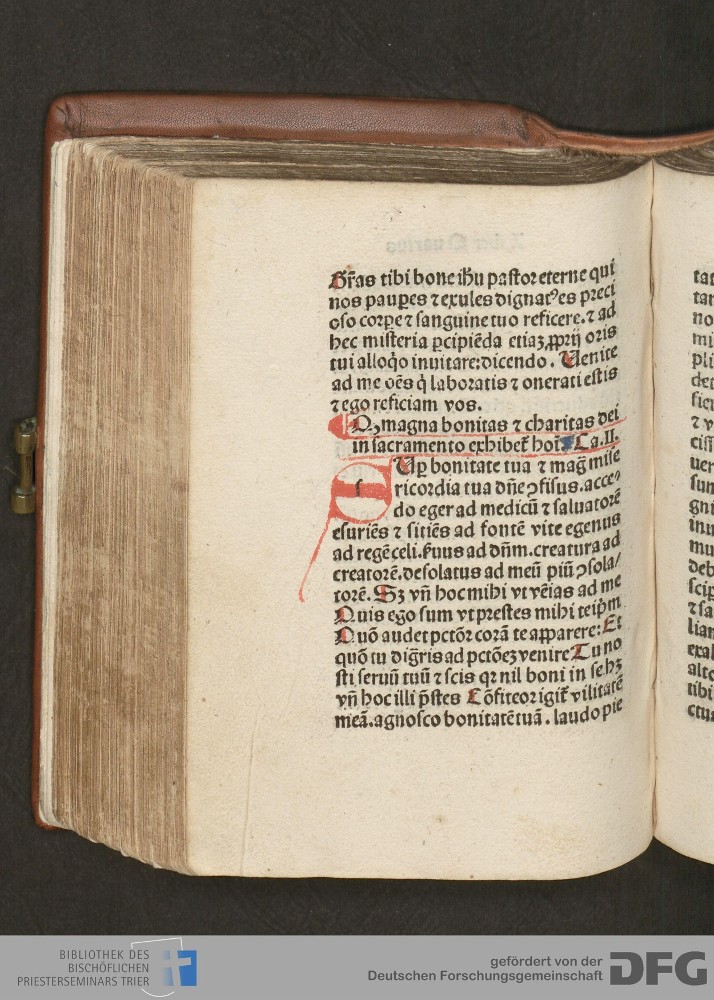 Gr̃as tibi bone ih̃u pastor eterne qui
nos pauꝑes ⁊ exules dignatꝰ es preci
oso corpe ⁊ sanguine tuo reficere. ⁊ ad
hec misteria ꝑcipiẽda etiaʒ ꝓprij oris
tui alloq̃o inuitare: dicendo. Uenite
ad me oẽs q̃ laboratis ⁊ onerati estis
⁊ ego reficiam vos.
Qꝫ magna bonitas ⁊ charitas dei
in sacramento exhibet̃ hoĩ. Ca. II.
SUꝑ bonitate tua ⁊ mag̃ mise
ricordia tua dñe ꝯfisus. acce⸗
do eger ad medicũ ⁊ saluatorẽ
esuriẽs ⁊ sitiẽs ad fontẽ vite egenus
ad regẽ celi. ẜuus ad dñm. creatura ad
creatorẽ. desolatus ad meũ piũ ꝯsola/
torẽ. Sʒ vñ hoc mihi vt vẽias ad me
Quis ego sum vt prestes mihi teip̃m
Quõ audet pctõr corã te apparere: Et
quõ tu dig̃ris ad pctõeʒ venire Tu no
sti seruũ tuũ ⁊ scis qꝛ nil boni in se hʒ
vñ hoc illi p̃stes Cõfiteor igit̃ vilitatẽ
meã. agnosco bonitatẽ tuã. laudo pie
BIBLIOTHEK DES
BISCHÖFLICHEN
PRIESTERSEMINARS TRIER
gefördert von der
Deutschen Forschungsgemeinschaft
DFG